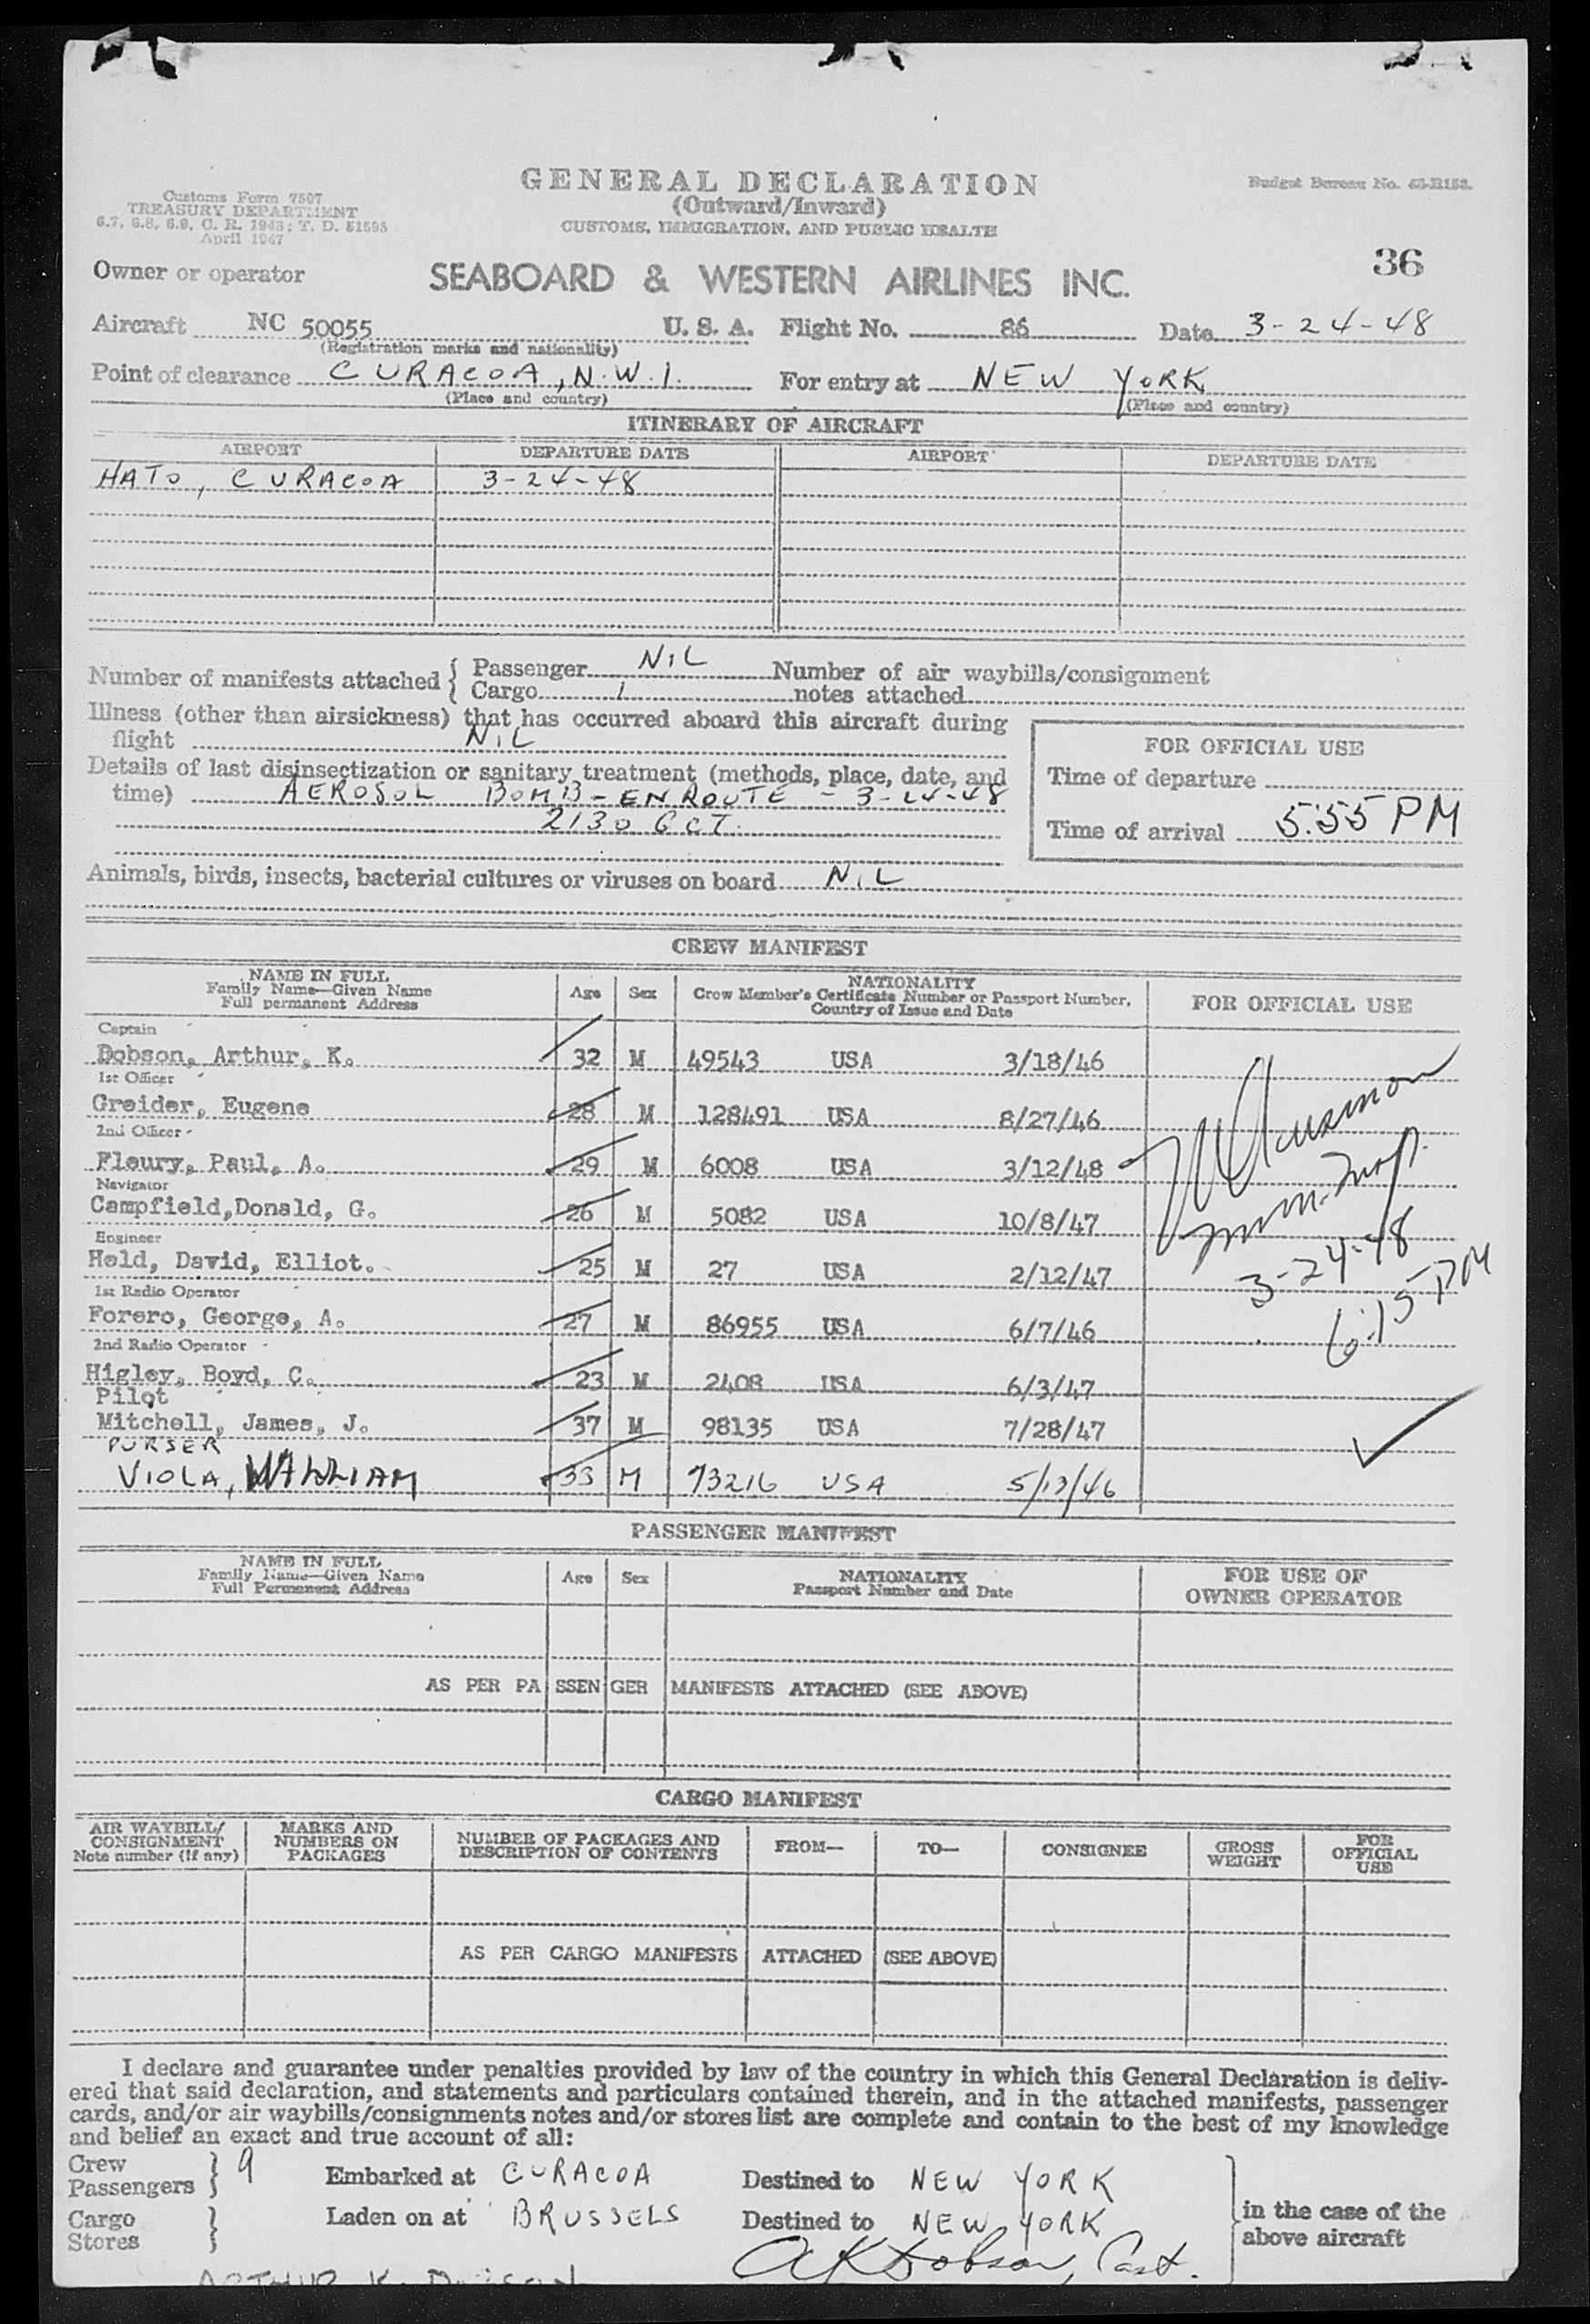 GENERAL DECLARATION
(Outward/Inward)
CUSTOMS, IMMIGRATION, AND PUBLIC HEALTH
Customs Form 7507
TREASURY DEPARTMENT
6.7, 6.8, 6.9, C. R. 1943; T. D. 51595
April 1947
Budget Bureau No.
36
Owner or operator SEABOARD & WESTERN AIRLINES INC.
Aircraft NC 50055 U. S. A. Flight No. 86 Date 3-24-48
(Registration marks and nationality)
Point of clearance CURACOA, N.W.I. For entry at NEW YORK
(Place and country) (Place and country)
ITINERARY OF AIRCRAFT
AIRPORT DEPARTURE DATE AIRPORT DEPARTURE DATE
HATO, CURACOA 3-24-48
Number of manifests attached { Passenger NIL Number of air waybills/consignment
{ Cargo 1 notes attached
Illness (other than airsickness) that has occurred aboard this aircraft during
flight NIL
Details of last disinsectization or sanitary treatment (methods, place, date, and
time) AEROSOL BOMB - EN ROUTE - 3-24-48
2130 GCT.
FOR OFFICIAL USE
Time of departure
Time of arrival 5:55 PM
Animals, birds, insects, bacterial cultures or viruses on board NIL
CREW MANIFEST
NAME IN FULL
Family Name—Given Name
Full permanent Address
Age Sex
NATIONALITY
Crew Member's Certificate Number or Passport Number,
Country of Issue and Date
FOR OFFICIAL USE
Captain
Dobson, Arthur, K. 32 M 49543 USA 3/18/46
1st Officer
Greider, Eugene 28 M 128491 USA 8/27/46
2nd Officer
Fleury, Paul, A. 29 M 6008 USA 3/12/48
Navigator
Campfield, Donald, G. 26 M 5082 USA 10/8/47
Engineer
Held, David, Elliot. 25 M 27 USA 2/12/47
1st Radio Operator
Forero, George, A. 27 M 86955 USA 6/7/46
2nd Radio Operator
Higley, Boyd, C. 23 M 2408 USA 6/3/47
Pilot
Mitchell, James, J. 37 M 98135 USA 7/28/47
PURSER
VIOLA, WILLIAM 33 M 73216 USA 5/13/46
Imm. Insp.
3-24-48
6:15 PM
PASSENGER MANIFEST
NAME IN FULL
Family Name—Given Name
Full Permanent Address
Age Sex
NATIONALITY
Passport Number and Date
FOR USE OF
OWNER OPERATOR
AS PER PASSENGER MANIFESTS ATTACHED (SEE ABOVE)
CARGO MANIFEST
AIR WAYBILL/
CONSIGNMENT
Note number (if any)
MARKS AND
NUMBERS ON
PACKAGES
NUMBER OF PACKAGES AND
DESCRIPTION OF CONTENTS
FROM— TO— CONSIGNEE
GROSS
WEIGHT
FOR
OFFICIAL
USE
AS PER CARGO MANIFESTS ATTACHED (SEE ABOVE)
I declare and guarantee under penalties provided by law of the country in which this General Declaration is deliv-
ered that said declaration, and statements and particulars contained therein, and in the attached manifests, passenger
cards, and/or air waybills/consignments notes and/or stores list are complete and contain to the best of my knowledge
and belief an exact and true account of all:
Crew
Passengers } 9 Embarked at CURACOA Destined to NEW YORK
Cargo
Stores } Laden on at BRUSSELS Destined to NEW YORK
in the case of the
above aircraft
A K Dobson, Capt.
ARTHUR K. DOBSON